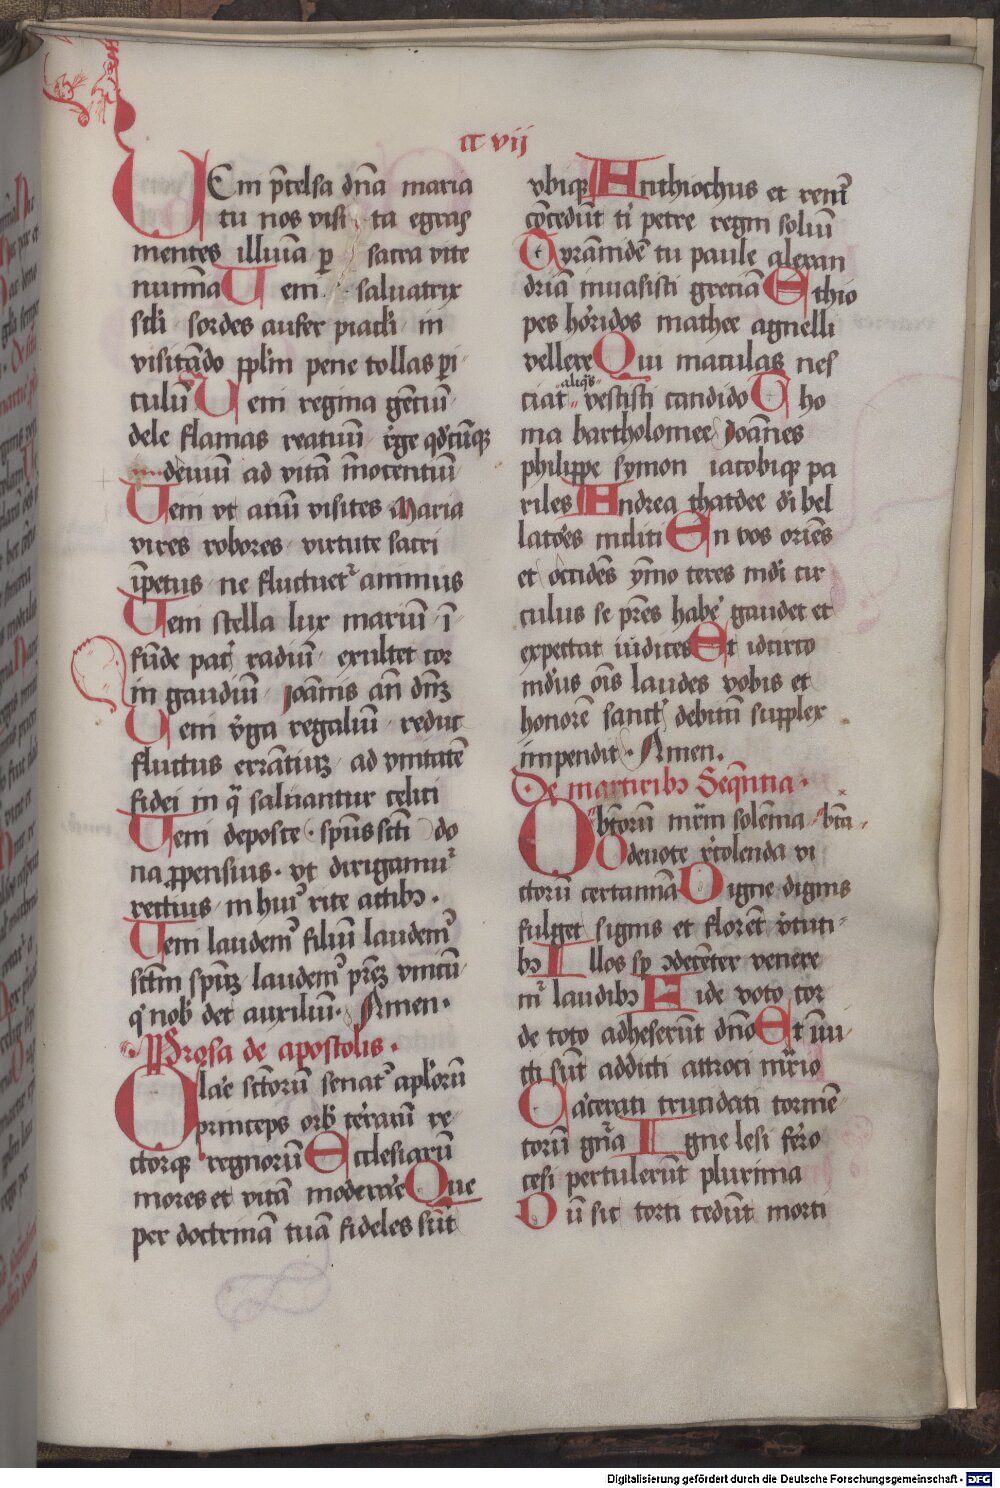 cc vij
VEni p̄celsa dn̄a maria
tu nos visi ta egras
mentes illuīa p̲ sacra vite
numīa Ueni saluatrix
scl̄i sordes aufer piacl̄i in
visitādo ppl̄m pene tollas pi
culū Ueni regina gētiū
dele flamas reatuū rēge qd̄cūqꝫ
deuiū ad vitā īnocentiū
Ueni vt atiū visites Maria
vires robores virtute sacri
īpetus ne fluctuet᷑ animus
Ueni stella lux mariū ī
fūde pac᷑ radiū exultet cor
in gaudiū Ioānis an̄ dn̄ꝫ
Ueni v̓ga regaliū reduc
fluctus errātiuꝫ ad vnitatē
fidei in q̄ saluantur celici
Ueni deposce sp̄ussc̄ti do
na ꝓpensius vt dirigamur᷑
rectius in huiꝰ vite actibꝫ
Ueni laudemꝰ filiū laudemꝰ
sc̄tm sp̄uꝫ laudemꝰ pr̄eꝫ vnicū
q nob̓ det auxiliū Amen
Prosa de apostolis
Olāe sc̄torū senatꝰ apl̓orū
princeps orb̓ te᷑rarū re
ctorqꝫ regnorū Ecclesiarū
mores et vitā moderāre Que
per doctrinā tuā fideles sūt
vbiqꝫ Anthiochus et remī
cōcedūt ti᷑ petre regni soliū
Tyrāmidē tu paule alexan
driā inuasisti greciā Ethio
pes hor᷑ridos mathee agnelli
vellere Qui maculas nes
ciat aliq̄s vestisti candido Tho
ma bartholomee Joānes
philippe symon iacobiqꝫ pa
riles Andrea thatdee dī bel
latōes incliti En vos oriēs
et occidēs ymo teres mdī cir
culus se pr̄es habē gaudet et
expectat iūdices Et idcirco
mdūs oīs laudes vobis et
honorē sanct᷑ debitū supplex
impendit Amen
De martiribꝫ Sequētia
Ob̄torū mr̄m solēnia btā
O deuote r̄colenda vi
ctorū certamīa Digne dignis
fulget signis et florēt v̓tuti
bꝫ Illos sp̄ ꝯdecēter venere
mr᷑ laudibꝫ Fide voto cor
de toto adheserūt dn̄o Et īui
cti sūt addicti atroci m̄rio
Carcerati trucidati tormē
torū gn̄a Igne lesi ferro
cesi pertulerūt plurima
Dū sic torti cedūt morti
Digitalisierung gefördert durch die Deutsche Forschungsgemeinschaft - DFG